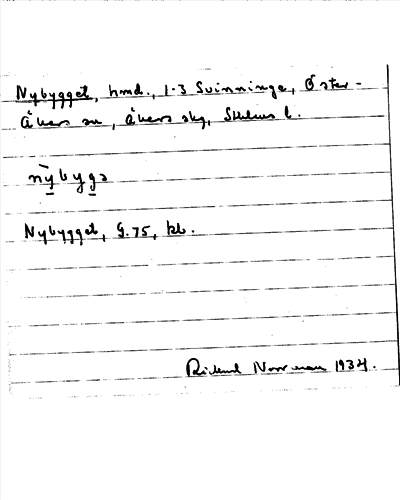 Nybygget, hmd., 1-3 Svinninge, Öster-
åkers sn, åkers skg, Sthlms l.
nybygə
Nybygget, G.75, kb.
Rickard Norrman 1934.